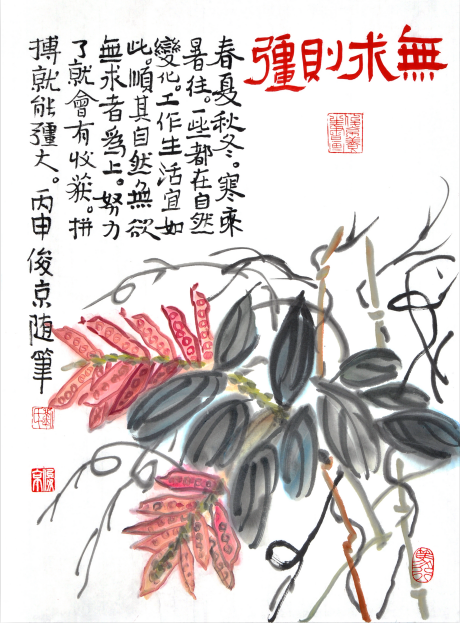 無求則彊
春夏秋冬。寒來
暑往。一些都在自然
變化。工作生活宜如
此。順其自然。無欲
無求者爲上。努力
了就會有收获。拼
搏就能彊大。丙申俊京随筆